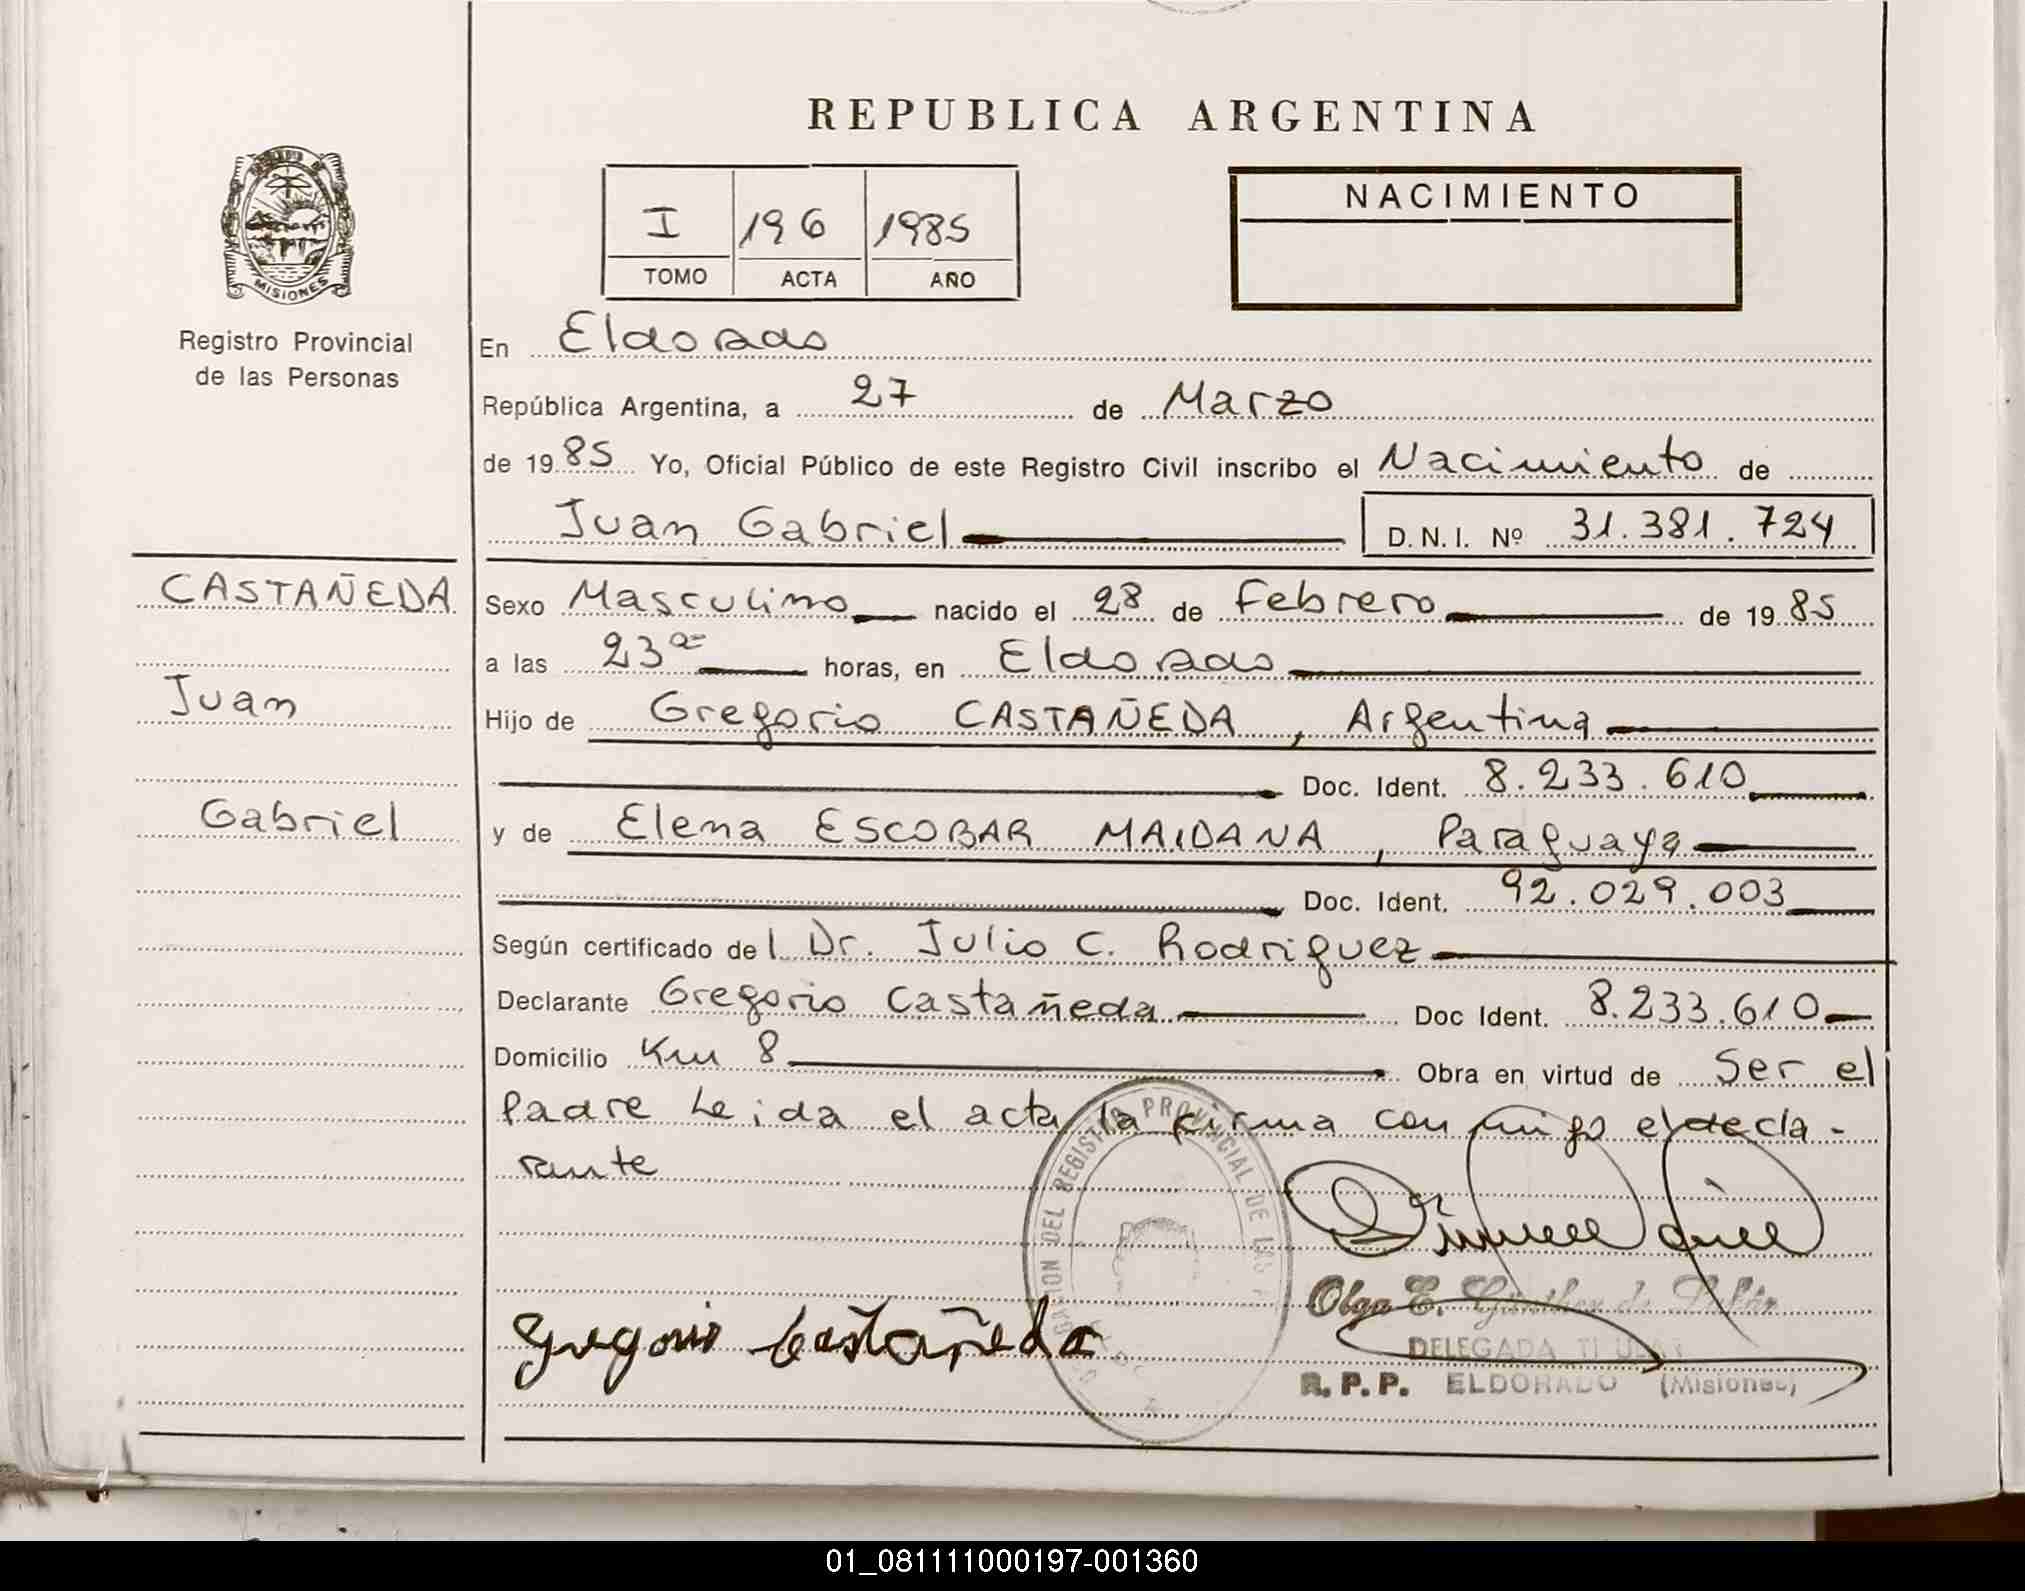 REPUBLICA ARGENTINA
I 196 1985
TOMO ACTA AÑO
NACIMIENTO
MISIONES
Registro Provincial
de las Personas
CASTAÑEDA
Juan
Gabriel
En Eldorado
República Argentina, a 27 de Marzo
de 1985 Yo, Oficial Público de este Registro Civil inscribo el Nacimiento de
Juan Gabriel D.N.I. Nº 31.381.724
Sexo Masculino nacido el 28 de Febrero de 1985
a las 23 horas, en Eldorado
Hijo de Gregorio CASTAÑEDA, Argentina
Doc. Ident. 8.233.610
y de Elena ESCOBAR MAIDANA, Paraguaya
Doc. Ident. 92.029.003
Según certificado del Dr. Julio C. Rodriguez
Declarante Gregorio Castañeda Doc Ident. 8.233.610
Domicilio Km 8 Obra en virtud de Ser el
Padre Leida el acta la firma conmigo el decla-
rante
DEL REGISTRO PROVINCIAL DE LAS
Gregorio Castañeda
Olga E. Günther de
DELEGADA TITULAR
R.P.P. ELDORADO (Misiones)
01_081111000197-001360